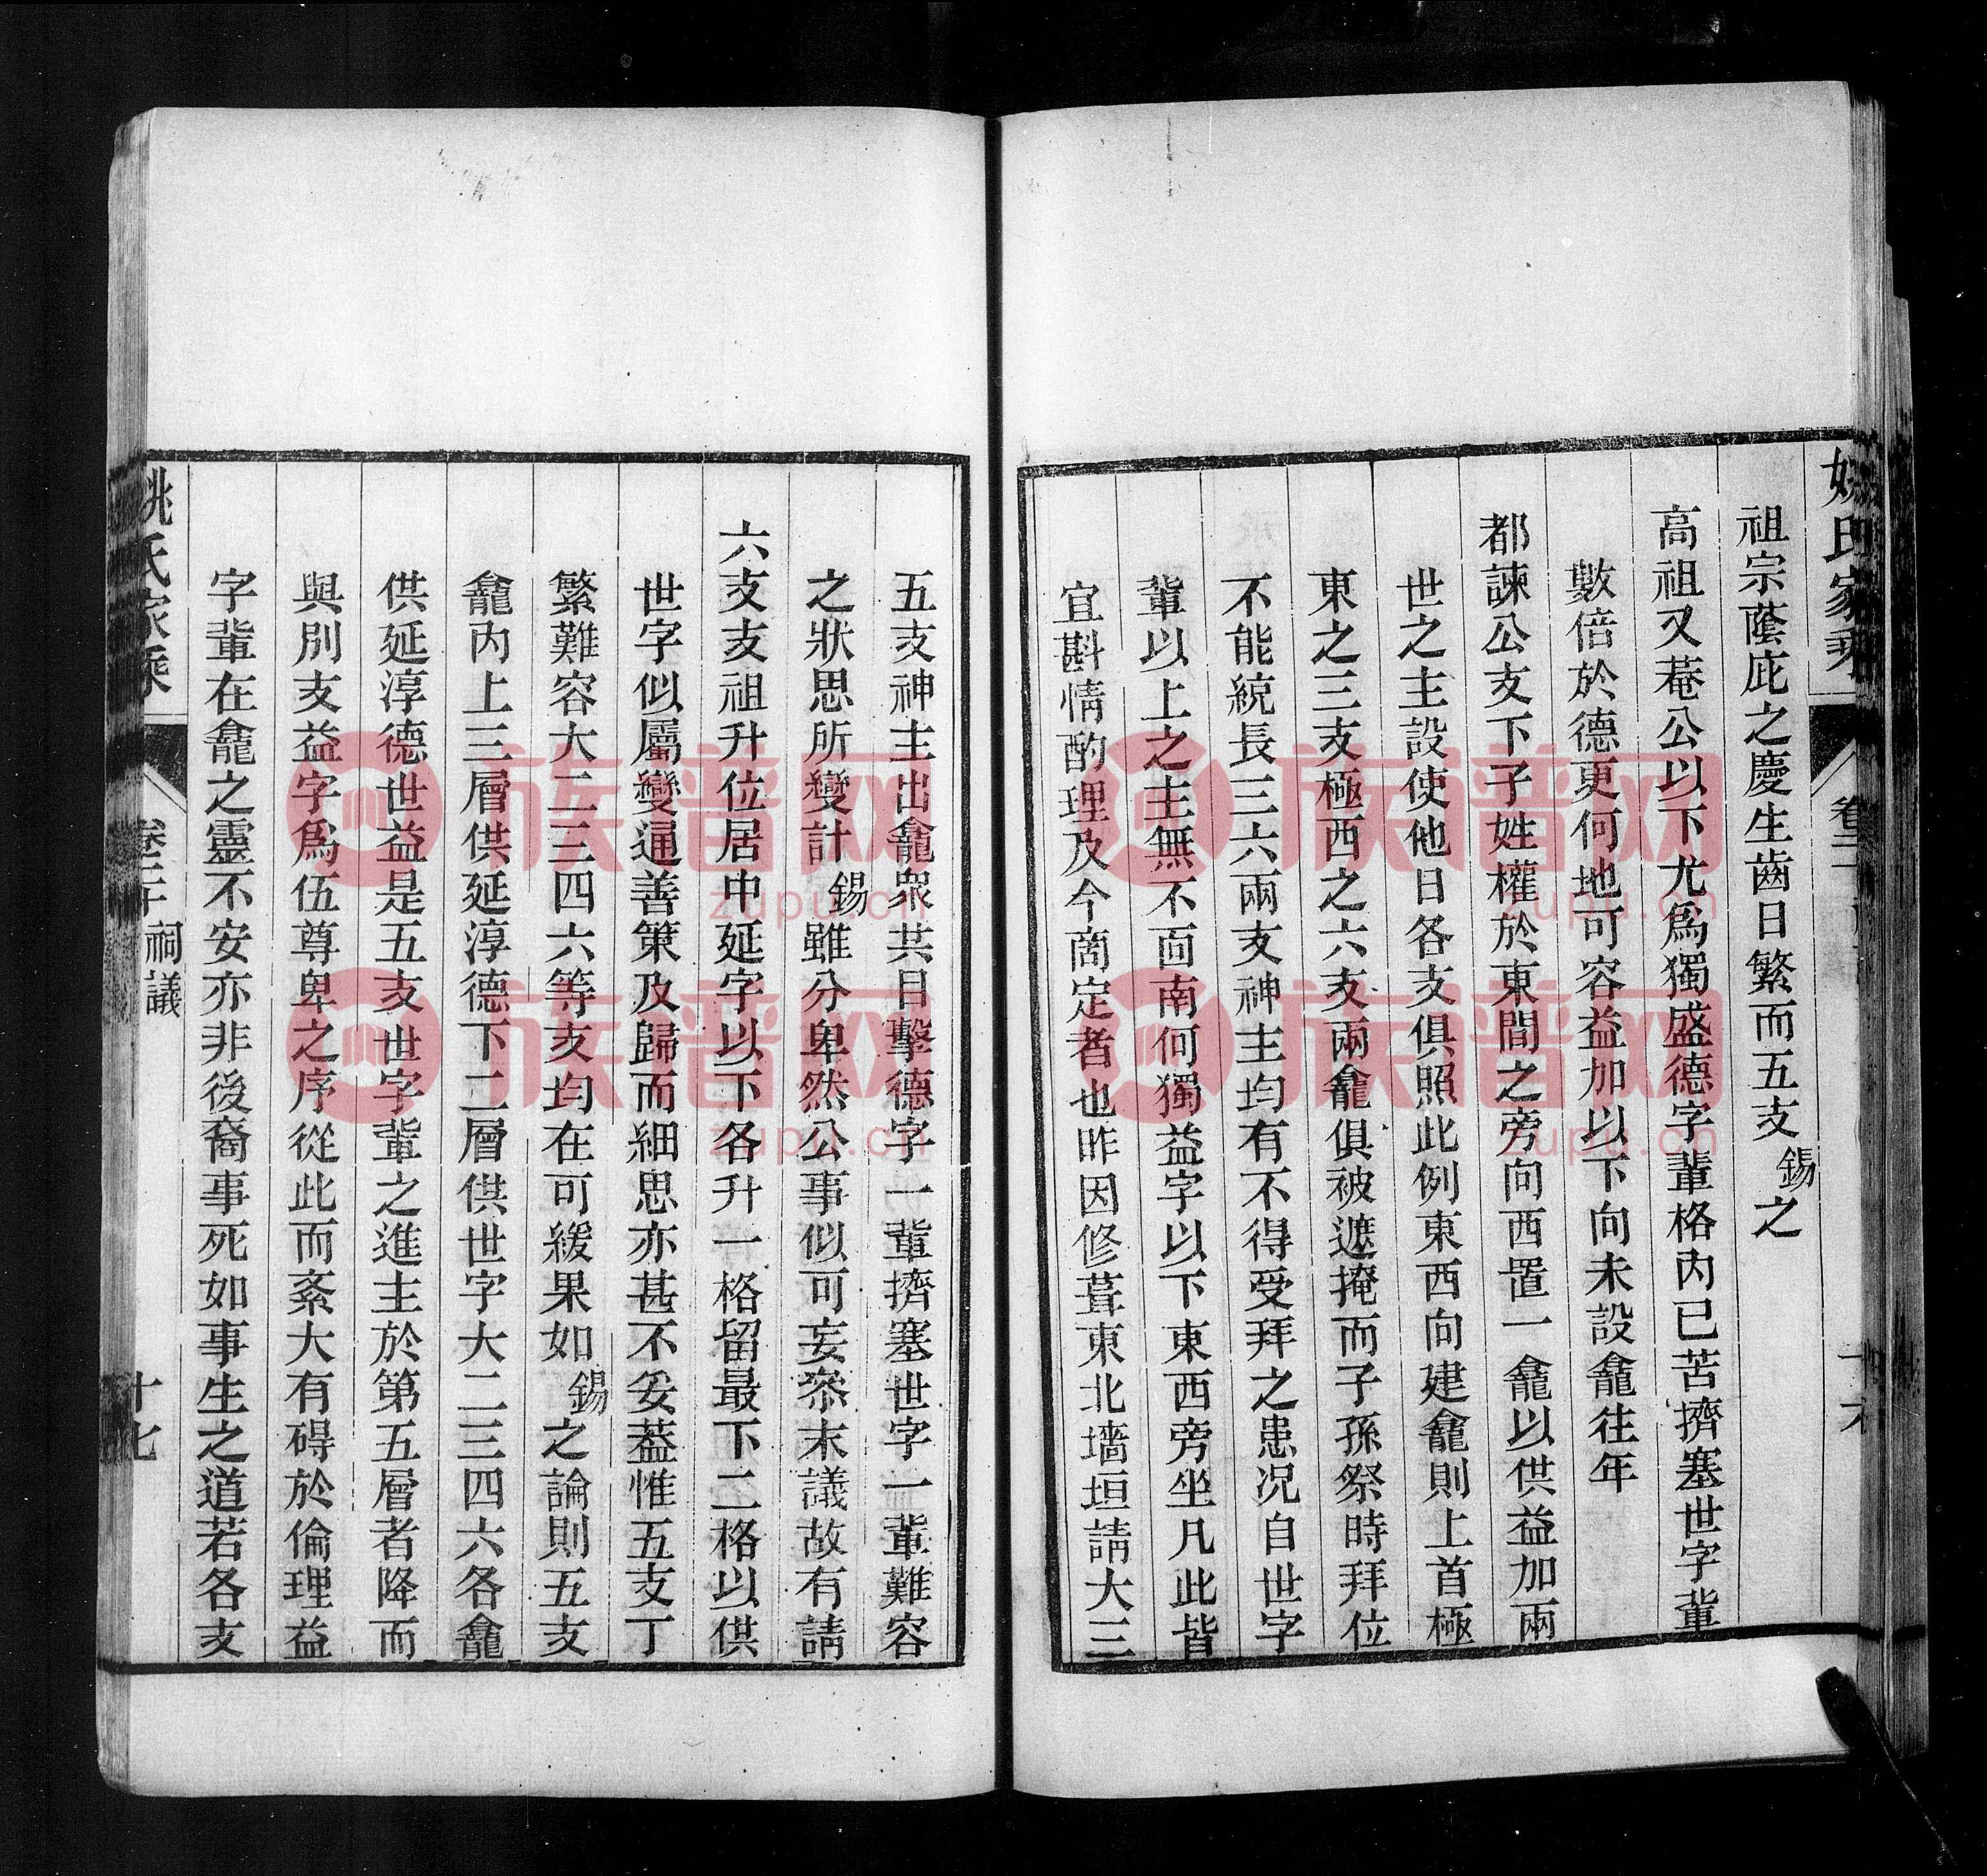 姚氏家乘
卷二十
十六
祖宗蔭庇之慶生齒日繁而五支錫之
高祖又菴公以下尤爲獨盛德字輩格內已苦擠塞世字輩
數倍於德更何地可容益加以下向未設龕往年
都諫公支下子姓權於東間之旁向西置一龕以供益加兩
世之主設使他日各支俱照此例東西向建龕則上首極
東之三支極西之六支兩龕俱被遮掩而子孫祭時拜位
不能統長三六兩支神主均有不得受拜之患况自世字
輩以上之主無不面南何獨益字以下東西旁坐凡此皆
宜斟情酌理及今商定者也昨因修葺東北墻垣請大三
五支神主出龕衆共目擊德字一輩擠塞世字一輩難容
之狀思所變計錫雖分卑然公事似可妄叅末議故有請
六支支祖升位居中延字以下各升一格留最下二格以供
世字似屬變通善策及歸而細思亦甚不妥葢惟五支丁
繁難容大二三四六等支均在可緩果如錫之論則五支
龕內上三層供延淳德下二層供世字大二三四六各龕
供延淳德世益是五支世字輩之進主於第五層者降而
與別支益字爲伍尊卑之序從此而紊大有碍於倫理益
字輩在龕之靈不安亦非後裔事死如事生之道若各支
姚氏家乘
卷二十 祠議
十七
族谱网
zupu.cn
族谱网
zupu.cn
族谱网
zupu.cn
族谱网
zupu.cn